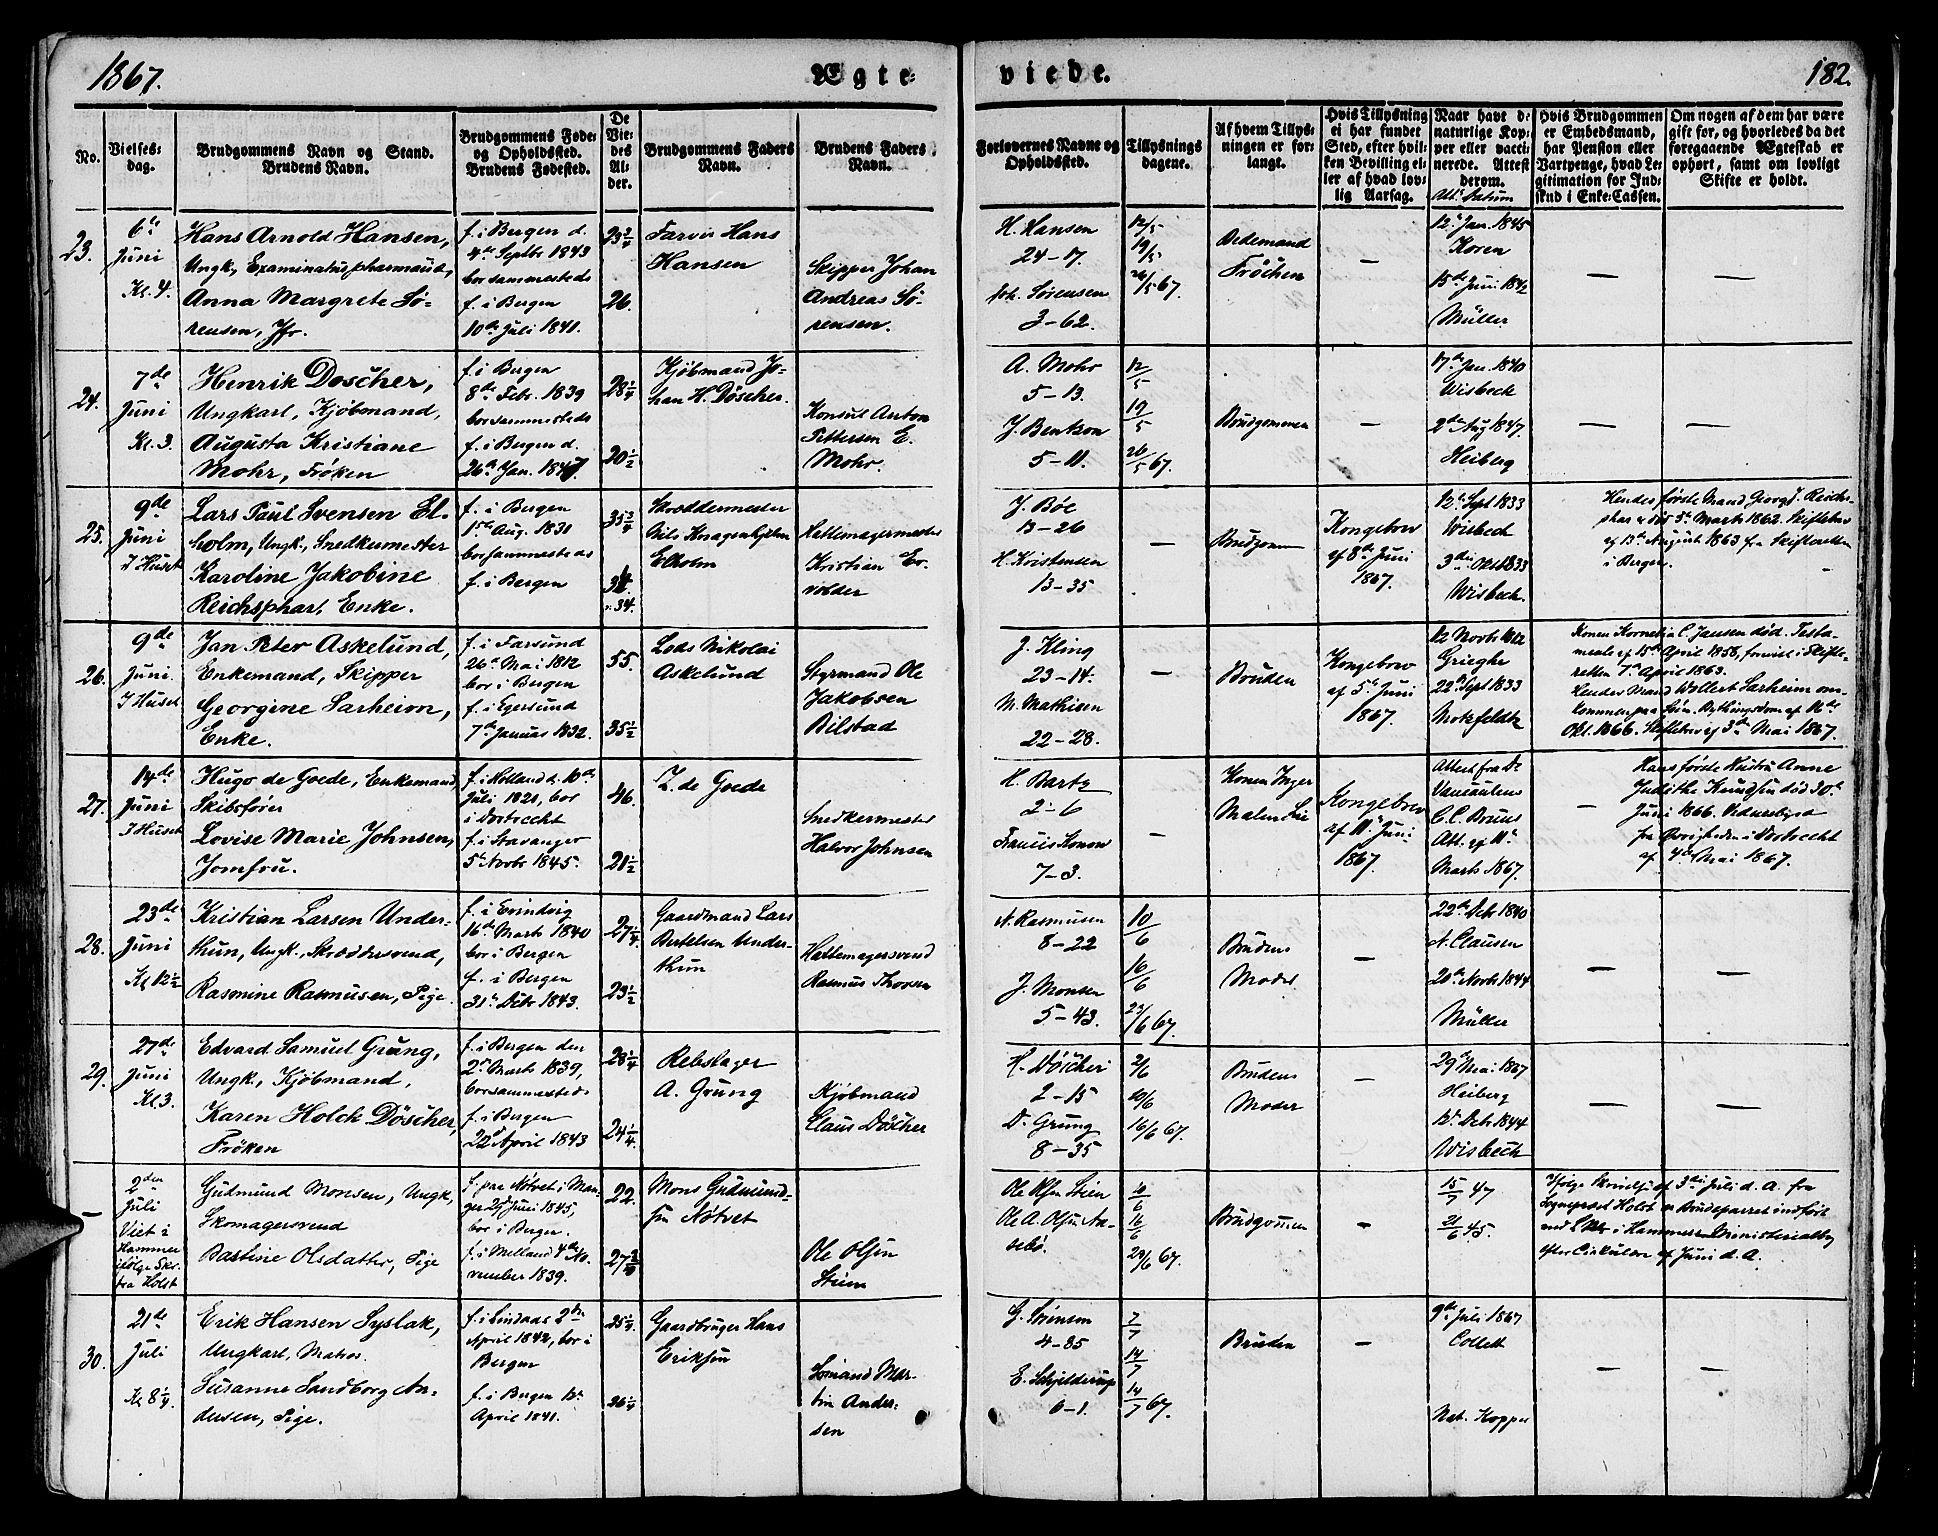 1867.
Ægte-
viede.
182.
No.
Vielses-
dag.
Brudgommens Navn og Stand.
Brudens Navn.
Brudgommens Føde-
og Opholdssted.
Brudens Fødested.
De
Vie-
des
Al-
der.
Brudgommens Faders
Navn.
Brudens Faders
Navn.
Forlovernes Navne og
Opholdssted.
Tillysnings
dagene.
Af hvem Tillys-
ningen er for-
langt.
Hvis Tillysning
ei har fundet
Sted, efter hvil-
ken Bevilling el-
ler af hvad lov-
lig Aarsag.
Naar havt de
naturlige Kop-
per eller vacci-
nerede. Attest
derom.
Att. Datum
Hvis Brudgommen
er Embedsmand,
har Pension eller
Vartpenge, hvad Le-
gitimation for Ind-
skud i Enke-Cassen.
Om nogen af dem har være
gift før, og hvorledes da det
foregaaende Ægteskab er
ophørt, samt om lovligt
Skifte er holdt.
23.
6te
Juni
Kl. 4.
Hans Arnold Hansen,
Ungk, Examinatus pharmaud,
Anna Margrete Sø-
rensen, Jfr.
f. i Bergen d.
4de Septbr 1843
bor sammesteds
f. i Bergen
10de Juli 1841.
23 3/4
26.
Farver Hans
Hansen
Skipper Johan
Andreas Sø-
rensen.
H. Hansen
24-17.
Joh. Sørensen
3-62.
12/5
19/5
26/5 67.
Bedemand
Fröchen
—
12te Jan. 1845
Koren
15de Juni 1842
Müller
—
—
24.
7de
Juni
Kl. 3.
Henrik Doscher,
Ungkarl, Kjøbmand,
Augusta Kristiane
Mohr, Frøken
f. i Bergen
8de Febr. 1839
bor sammesteds
f. i Bergen d.
26de Jan. 1847
28 1/4
20 1/2
Kjøbmand Jo-
han H. Döscher.
Konsul Anton
Pettersen E.
Mohr.
A. Mohr
5-13.
J. Bentzon
5-11.
12/5
19/5
26/5 67.
Brudgommen
—
17de Jan. 1840
Wisbech
2den Aug 1847.
Heiberg
—
—
25.
9de
Juni
I Huset
Lars Paul Svensen El-
holm, Ungk., Snedkermester
Karoline Jakobine
Reichsphar, Enke.
f. i Bergen
15de Aug. 1831
bor sammesteds
f. i Bergen
35 3/4
34.
Skræddermester
Nils Knagenhjelm
Elholm
Hattemagermester
Kristian Ev-
volder
J. Böe
13-26
H. Kristensen
13-35
—
Brudgomm
Kongebrev
af 8de Juni
1867.
12te Sept 1833
Wisbech
3die Okt 1833
Wisbech.
Hendes første Mand Georg J. Reichs-
phar døde 5te Marts 1862. Skiftebrev
af 13de August 1863 fra Skifteretten
i Bergen.
26.
9de
Juni.
I Huset
Jan Peter Askelund,
Enkemand, Skipper
Georgine Sarheim,
Enke.
f. i Farsund
26de Mai 1812
bor i Bergen
f. i Egersund
7de Januar 1832.
55.
35 1/2
Lods Nikolai
Askelund
Styrmand Ole
Jakobsen
Bilstad
J. Kling
23-14.
M. Mathisen
22-28.
—
Bruden
Kongebrev
af 5te Juni
1867.
12 Novbr 1812
Grieghr
22de Sept 1833
Motzfeldt
Konen Kornelia C. Jansen død. Testa-
mente af 15de April 1858, forvist i Skifte-
retten 7de April 1863.
Hendes Mand Wollert Sarheim om-
kommen paa Søen. Bythingsdom af 16de
Okt. 1866. Skiftebrev af 3de Mai 1867.
27.
14de
Juni
I Huset
Hugo de Goede, Enkemand,
Skibsfører
Lovise Marie Johnsen,
Jomfru.
f. i Holland d. 16de
Juli 1821, bor
i Dortrecht
f. i Stavanger
5te Novbr 1845.
46.
21 1/2
Z. de Goede
Snedkermester
Halvor Johnsen
H. Bartz
2-6
Francis Konow
7-3.
—
Konen Inger
Malen Lie
Kongebrev
af 11te Juni
1867.
Attest fra Dr
C. C. Bruns
Att. af 11te
Marts 1867.
—
Hans første Hustru Anne
Judithe Knudsen død 30te
Juni 1866. Vidnesbyrd
fra Øvrigheden i Dortrecht
af 4de Mai 1867.
28.
23de
Juni
Kl 12 1/2
Kristian Larsen Under-
thun, Ungk., Skræddersvend,
Rasmine Rasmusen, Pige.
f. i Evindvig
16de Marts 1840
bor i Bergen
f. i Bergen
31te Debr 1843.
27 1/4
23 1/2
Gaardmand Lars
Bertelsen Under-
thun
Hattemagersvend
Rasmus Thorsen
N. Rasmusen
8-22
J. Monsen
5-43.
10/6
16/6
23/6 67.
Brudens
Moder
—
22de Debr 1840
N. Clausen
20de Novbr 1844
Müller
—
—
29.
27de
Juni
Kl. 3.
Edvard Samuel Grung,
Ungk., Kjøbmand,
Karen Holck Döscher,
Frøken
f. i Bergen den
2den Marts 1839,
bor sammesteds
f. i Bergen
22de April 1843
28 1/4
24 1/4.
Rebslager
A. Grung
Kjøbmand
Claus Döscher
H. Döscher
2-15
D. Grung
8-35
2/6
10/6
16/6 67.
Brudens
Moder
—
29de Mai 1867
Heiberg
12te Debr 1844
Wisbech
—
—
—
2den
Juli
Viet i
Hammer
ifølge Skr.
fra Holst
Gudmund Monsen, Ungk,
Skomagersvend
Bastine Olsdatter, Pige
f. paa Nøtvet i Man-
ger 29 Juni 1845,
bor i Bergen.
f. i Melland 4de No-
vember 1839.
22.
27 3/4
Mons Gudmund-
sen Nøtvet
Ole Olsen
Steen
Ole Olsen Steen
Ole A. Olsen Aa-
sebö.
10/6
16/6
23/6 67.
Brudgommen
—
15/7 47
21/6 45.
Ifølge Skrivelse af 3die Juli d. A. fra
Sogneprest Holst er Brudeparret indført
i Hammers Ministerialbog
efter Cirkulære af Juni d. A.
30.
21de
Juli
Kl 8 1/4.
Erik Hansen Syslak,
Ungkarl, Matros.
Susanne Sandborg An-
dersen, Pige.
f. i Lindaas 2den
April 1842, bor i
Bergen
f. i Bergen 12te
April 1841.
25 1/4.
26 1/4
Gaardbruger Hans
Eriksen
Sømand Mar-
tin Ander-
sen
G. Sörensen
4-85
E. Schjelderup
6-1.
7/7
14/7
14/7 67.
Bruden
—
9de Juli 1867
Collett
Nat. Kopper
—
—